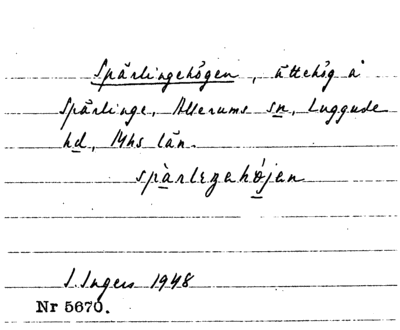 Spärlingehögen, ättehög å
Spärlinge, Allerums sn, Luggude
hd, Mhs län.
spàrlıŋahǿjen
I. Ingers 1948
Nr 5670.